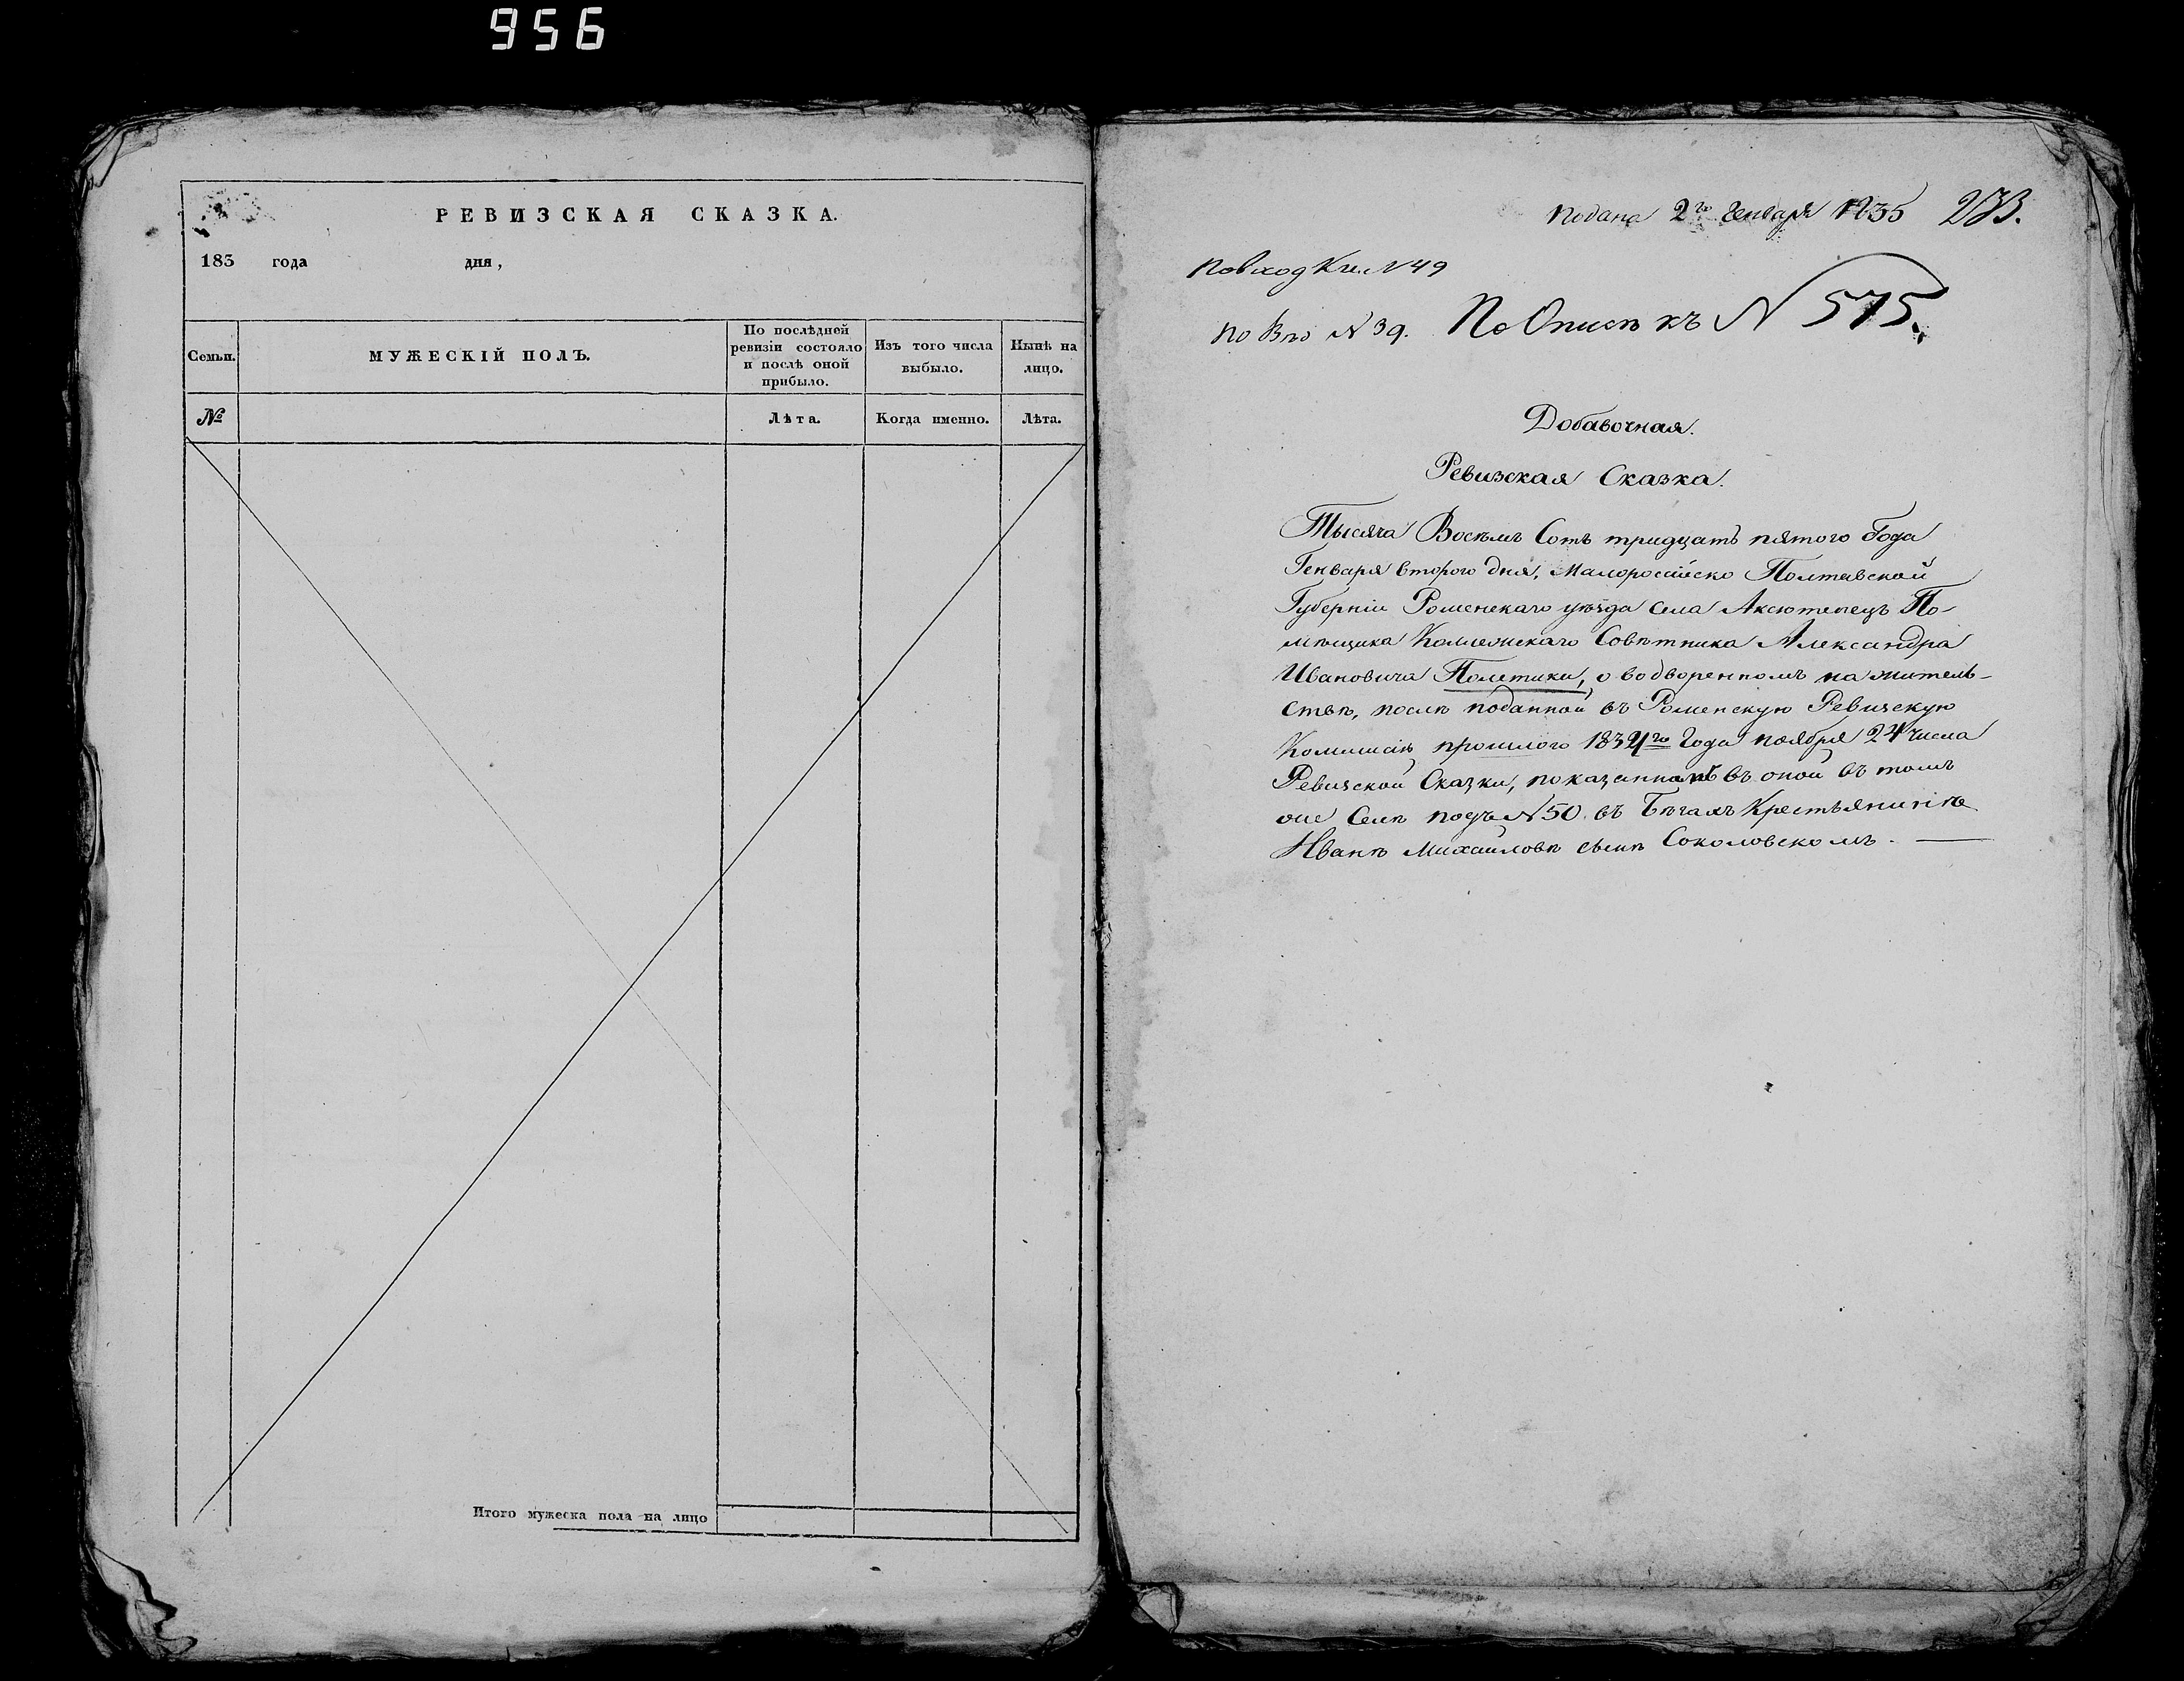 956
РЕВИЗСКАЯ СКАЗКА.
183 года дня,
Семьи.
МУЖЕСКІЙ ПОЛЪ.
По послѣдней
ревизіи состояло
и послѣ оной
прибыло.
Изъ того числа
выбыло.
Нынѣ на
лицо.
№
Лѣта.
Когда именно.
Лѣта.
Итого мужеска пола на лицо
подана 2го Генваря 1835 273.
по вход Кн. N 49
по N 39. По Описи къ N 575.
Добавочная.
Ревизская Сказка.
Тысяча Восемъ Сотъ тридцать пятого Года
Генваря второго дня, Малоросійско Полтавской
Губерніи Роменскаго уѣзда села Аксютенецъ По-
мѣщика Колежскаго Совѣтника Александра
Ивановича Полетики, о водворенномъ на житель-
ствѣ, послѣ поданной въ Роменскую Ревизскую
Комисію прошлого 1834го Года ноября 24 числа
Ревизской Сказки, показанномъ въ оной въ томъ
же Селѣ подъ N 50. въ Бѣгахъ Крестьянинѣ
Иванѣ Михайловѣ сынѣ Соколовскомъ. —